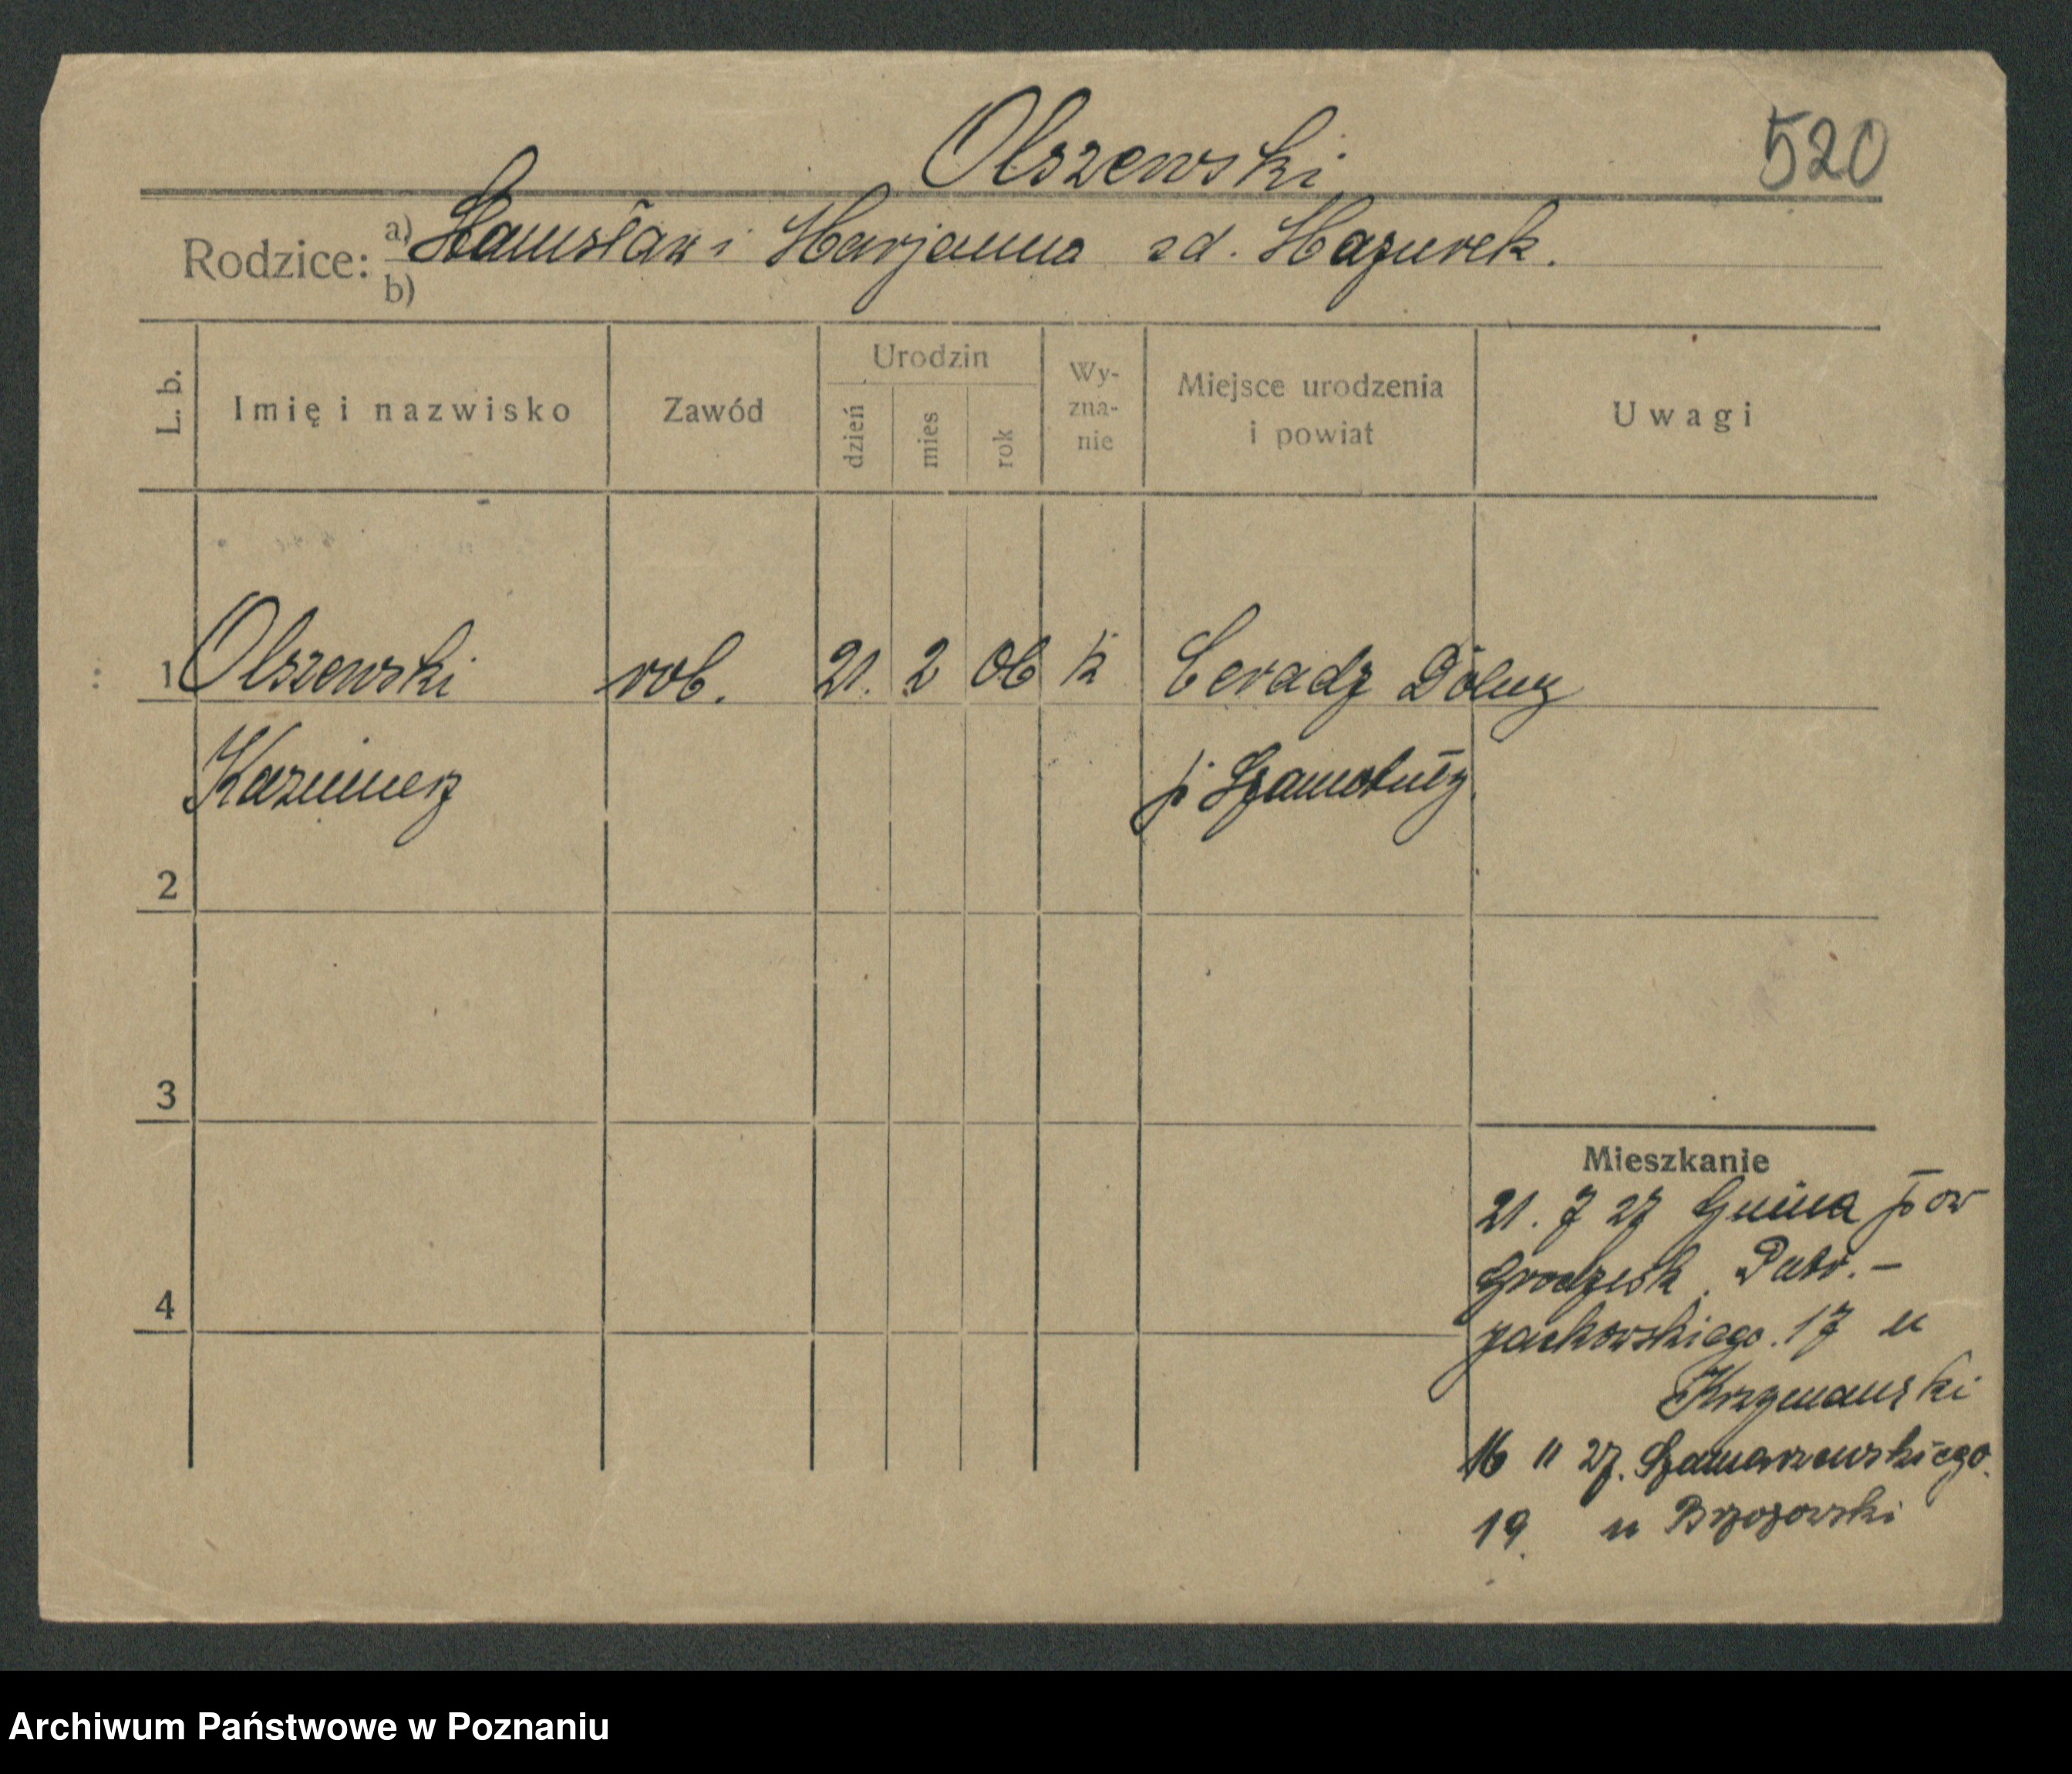 Olszewski 520
Rodzice: a) Stanisław i Marjanna zd. Mazurek.
b)
L. b. Imię i nazwisko Zawód Urodzin dzień mies rok Wy-zna-nie Miejsce urodzenia i powiat Uwagi
1 Olszewski rob. 21. 2 06 k Ceradz Dolny
Kazimierz p. Szamotuły
2
3
Mieszkanie
21. 7 27 Gmina pow
Grodzisk. Patr.-
4
jackowskiego. 17 u
Krzymański
16 11 27. Szamarzewskiego.
19. u Brzozowski
Archiwum Państwowe w Poznaniu